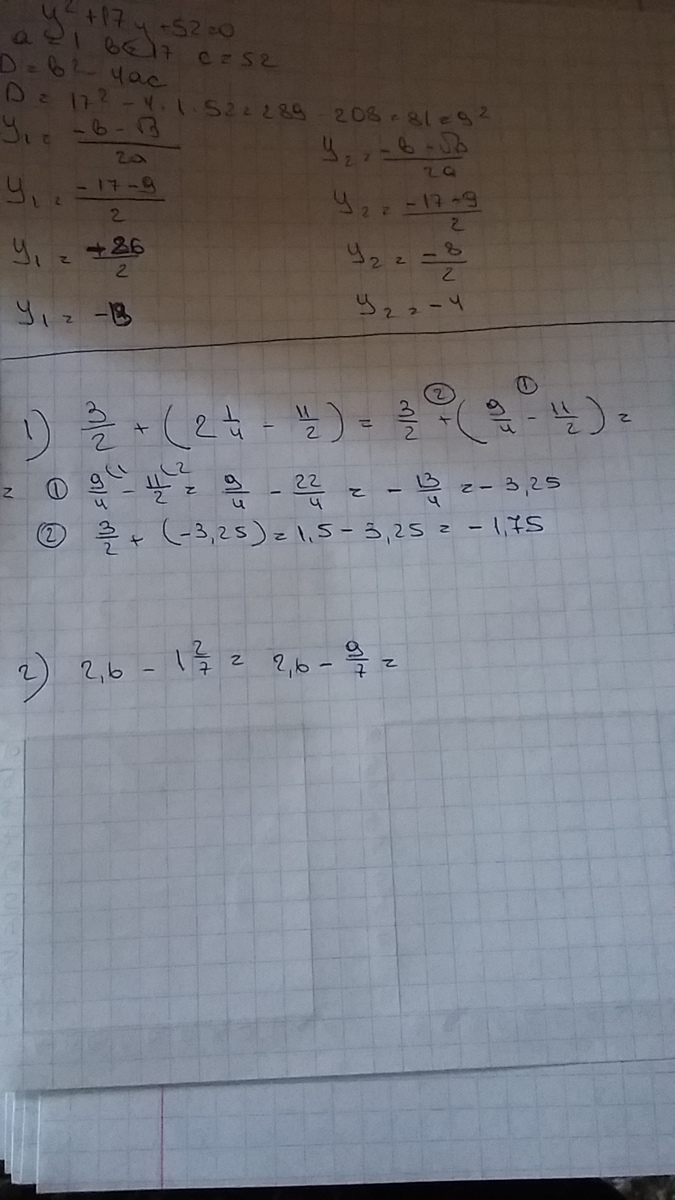 y² + 17y + 52 = 0
a = 1 b = 17 c = 52
D = b² - 4ac
D = 17² - 4 · 1 · 52 = 289 - 208 = 81 = 9²
y₁ = (-b - √D)/2a y₂ = (-b - √D)/2a
y₁ = (-17 - 9)/2 y₂ = (-17 - 9)/2
y₁ = -26/2 y₂ = -8/2
y₁ = -13 y₂ = -4
1) 3/2 + (2 1/4 - 11/2) = 3/2 +② (9/4 -① 11/2) =
= ① 9/4(1 - 11/2(2 = 9/4 - 22/4 = - 13/4 = - 3,25
② 3/2 + (-3,25) = 1,5 - 3,25 = - 1,75
2) 2,6 - 1 2/7 = 2,6 - 9/7 =